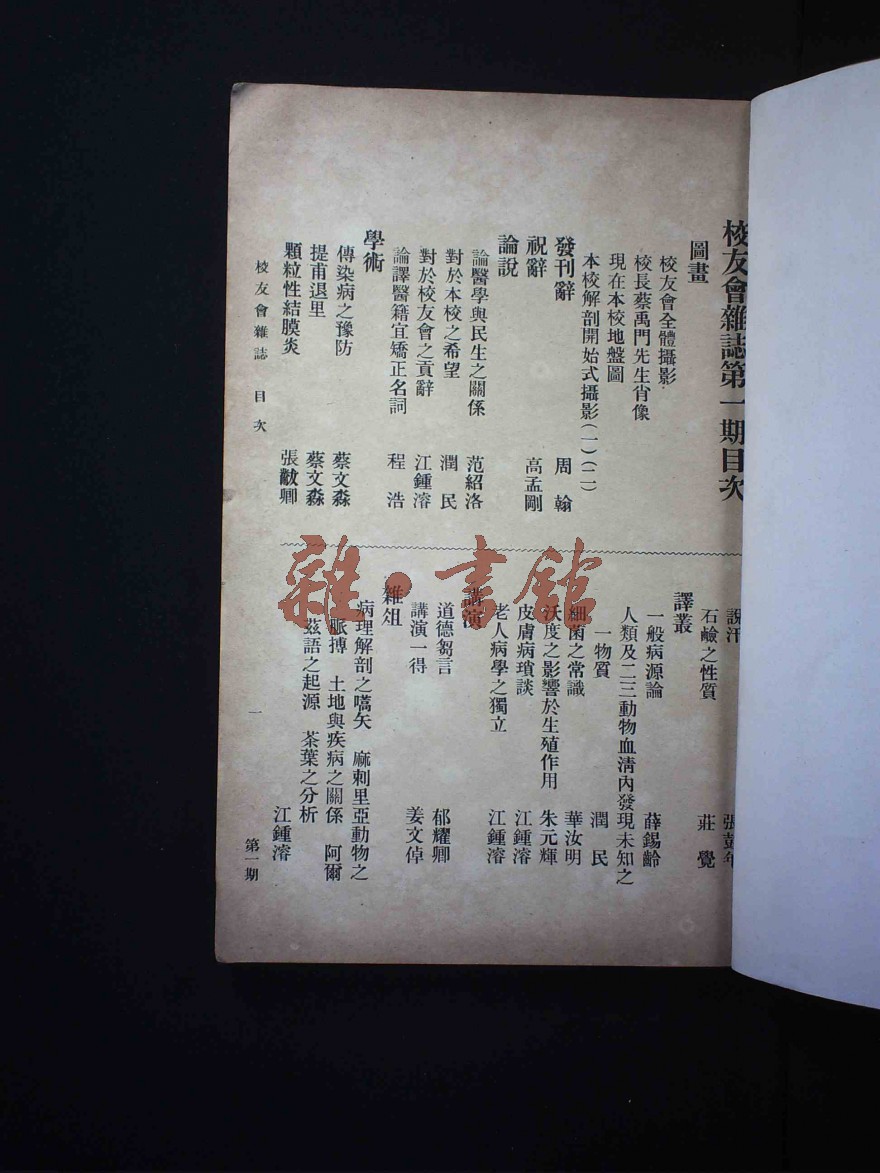 校友會雜誌第一期目次
圖畫
校友會全體攝影
校長蔡禹門先生肖像
現在本校地盤圖
本校解剖開始式攝影(一)(二)
發刊辭 周翰
祝辭 高孟剛
論說
論醫學與民生之關係 范紹洛
對於本校之希望 潤民
對於校友會之貢辭 江鍾溶
論譯醫籍宜矯正名詞 程浩
學術
傳染病之豫防 蔡文淼
提甫退里 蔡文淼
顆粒性結膜炎 張黻卿
說汗
石鹼之性質 莊覺
譯叢
一般病源論 薛錫齡
人類及二三動物血清內發現未知之
一物質 潤民
細菌之常識 華汝明
沃度之影響於生殖作用 朱元輝
皮膚病瑣談 江鍾溶
老人病學之獨立 江鍾溶
講演
道德芻言 郁耀卿
講演一得 姜文倬
雜俎
病理解剖之嚆矢 麻剌里亞動物之
脈搏 土地與疾病之關係 阿爾
茲語之起源 茶葉之分析
江鍾溶
校友會雜誌 目次
一
第一期
雜·書館